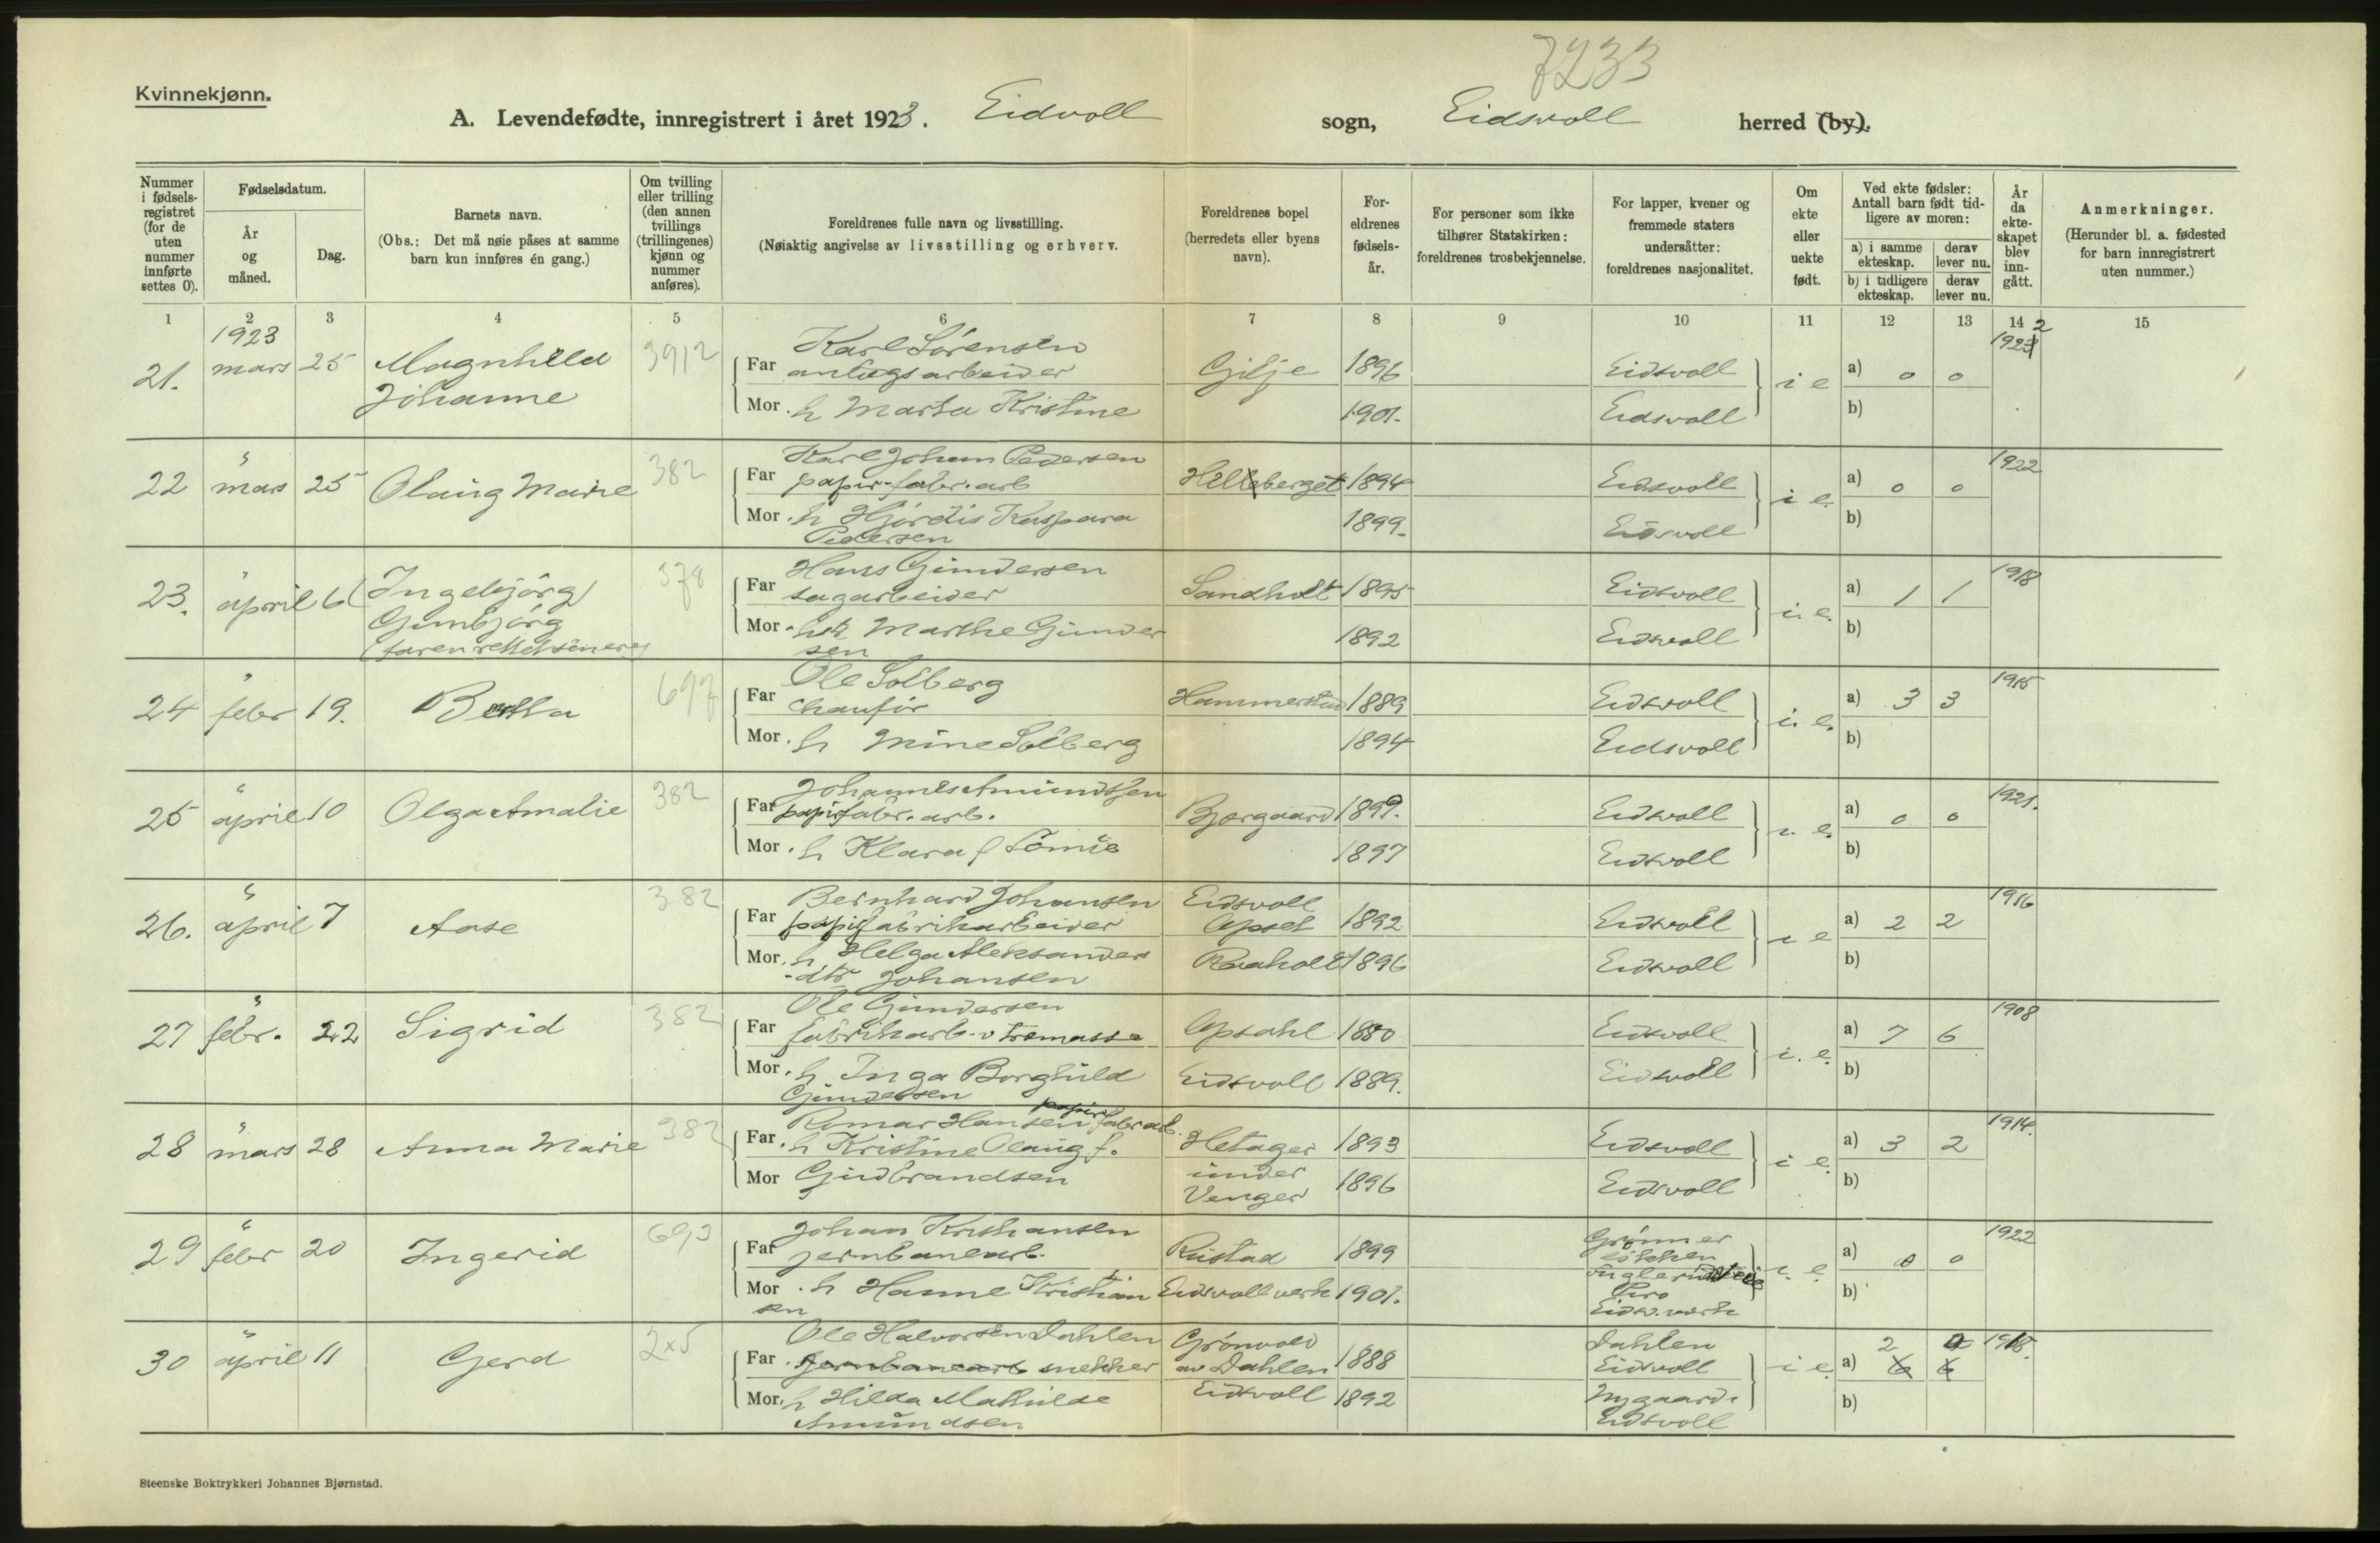 7233
Kvinnekjønn.
A. Levendefødte, innregistrert i året 1923. Eidvoll sogn, Eidsvoll herred (by).
Nummer i fødsels-registret (for de uten nummer innførte settes 0).
Fødselsdatum.
År og måned.
Dag.
Barnets navn.
(Obs.: Det må nøie påses at samme barn kun innføres én gang.)
Om tvilling eller trilling (den annen tvillings (trillingenes) kjønn og nummer anføres).
Foreldrenes fulle navn og livsstilling.
(Nøiaktig angivelse av livsstilling og erhverv.
Foreldrenes bopel (herredets eller byens navn).
For-eldrenes fødsels-år.
For personer som ikke tilhører Statskirken: foreldrenes trosbekjennelse.
For lapper, kvener og fremmede staters undersåtter: foreldrenes nasjonalitet.
Om ekte eller uekte født.
Ved ekte fødsler: Antall barn født tid-ligere av moren:
a) i samme ekteskap.
derav lever nu.
b) i tidligere ekteskap.
derav lever nu.
År da ekte-skapet blev inn-gått.
Anmerkninger.
(Herunder bl. a. fødested for barn innregistrert uten nummer.)
1 2 3 4 5 6 7 8 9 10 11 12 13 14 15
1923
21. mars 25 Magnhild Johanne 3912
Far Karl Sørensen anlegsarbeider Gilje 1896 Eidsvoll i e a) 0 0 1922
Mor. h Marta Kristine 1901. Eidsvoll b)
22 " mars 25 Olaug Marie 382
Far Karl Johan Pedersen papir-fabr. arb Helleberget 1894 Eidsvoll i e. a) 0 0 1922
Mor. h Hjördis Kaspara Pedersen 1899. Eidsvoll b)
23. " april 6 (Ingebjörg) Gunbjörg (faren rettet senere) 378
Far Hans Gundersen sagarbeider Sandholt 1895 Eidsvoll i. e. a) 1 1 1918
Mor. h Marthe Gundersen 1892 Eidsvoll b)
24 " febr 19. Berta 697
Far Ole Solberg chauför Hammerstad 1889 Eidsvoll i. e. a) 3 3 1915
Mor. h Mine Solberg 1894 Eidsvoll b)
25 " april 10 Olga Amalie 382
Far Johannes Amundsen papirfabr. arb. Bjørgaard 1899. Eidsvoll i e. a) 0 0 1921.
Mor. h Klara f 1897 Eidsvoll b)
26. " april 7 Aase 382
Far Bernhard Johansen papirfabrikarbeider Eidsvoll Opset 1892 Eidsvoll i e a) 2 2 1916
Mor. h Helga Aleksanders-dtr Johansen Raaholt 1896 Eidsvoll b)
27 " febr. 22 Sigrid 382
Far Ole Gundersen fabrikarb. v tremasse Opsahl 1880 Eidsvoll i. e. a) 7 6 1908
Mor. h Inga Borghild Gundersen Eidsvoll 1889. Eidsvoll b)
28 " mars 28 Anna Marie 382
Far. Romar Hansen papirfabr arb. h Kristine Olaug f. Hetager 1893 Eidsvoll i e. a) 3 2 1914.
Mor Gudbrandsen under Venger 1896 Eidsvoll b)
29 " febr 20 Ingerid 693
Far Johan Kristiansen jernbanearb. Rustad 1899 i. e. a) 0 0 1922
Mor. h Hanne Kristiansen Eidsvoll verk 1901. Eidsv. verk b)
30 " april 11 Gerd 2x5
Far. Ole Halvorsen Dahlen jernbanearb snekker Grönvold av Dahlen 1888 Dahlen Eidsvoll i e. a) 2 6 6 1918.
Mor. h Hilda Mathilde Amundsen Eidsvoll 1892 Nygaard. Eidsvoll b)
Steenske Boktrykkeri Johannes Bjørnstad.